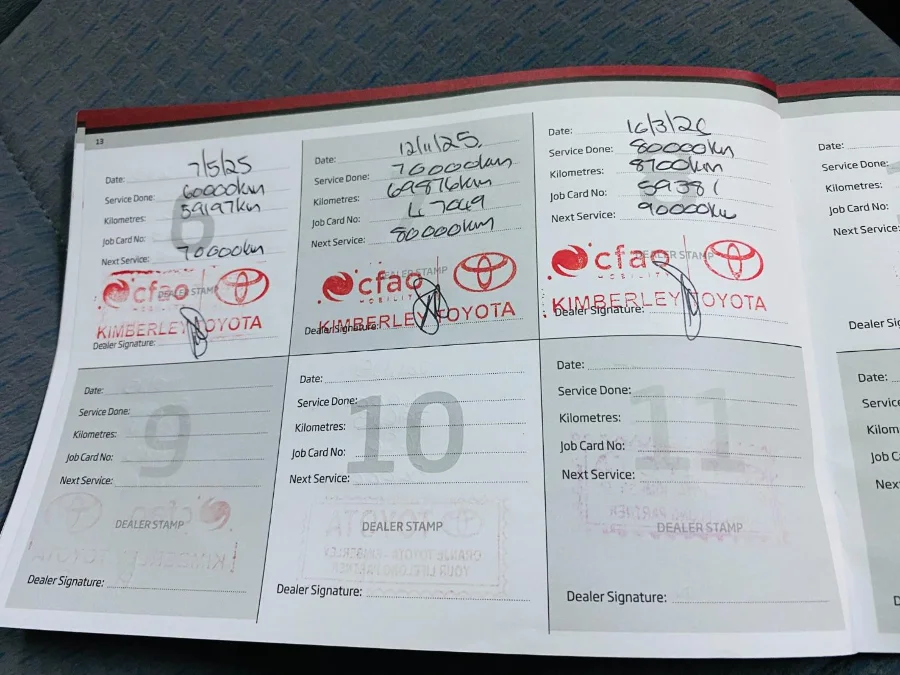 13
Date: 7/5/25
Service Done: 60000km
Kilometres: 59197km
Job Card No:
Next Service: 70000km
6
cfao
DEALER STAMP
MOBILITY
KIMBERLEY TOYOTA
Dealer Signature:
Date: 12/11/25.
Service Done: 70000km
Kilometres: 69876km
Job Card No: 47049
Next Service: 80000km
cfao
DEALER STAMP
MOBILITY
KIMBERLEY TOYOTA
Dealer Signature:
Date: 16/3/26
Service Done: 80000km
Kilometres: 8700km
Job Card No: 59381
Next Service: 90000km
cfao
DEALER STAMP
KIMBERLEY TOYOTA
Dealer Signature:
Date:
Service Done:
Kilometres:
Job Card No:
Next Service:
Dealer S
Date:
Service Done:
Kilometres:
Job Card No:
Next Service:
9
DEALER STAMP
Dealer Signature:
Date:
Service Done:
Kilometres:
Job Card No:
Next Service:
10
DEALER STAMP
Dealer Signature:
Date:
Service Done:
Kilometres:
Job Card No:
Next Service:
11
DEALER STAMP
Dealer Signature:
Date:
Service
Kilom
Job C
Nex
D